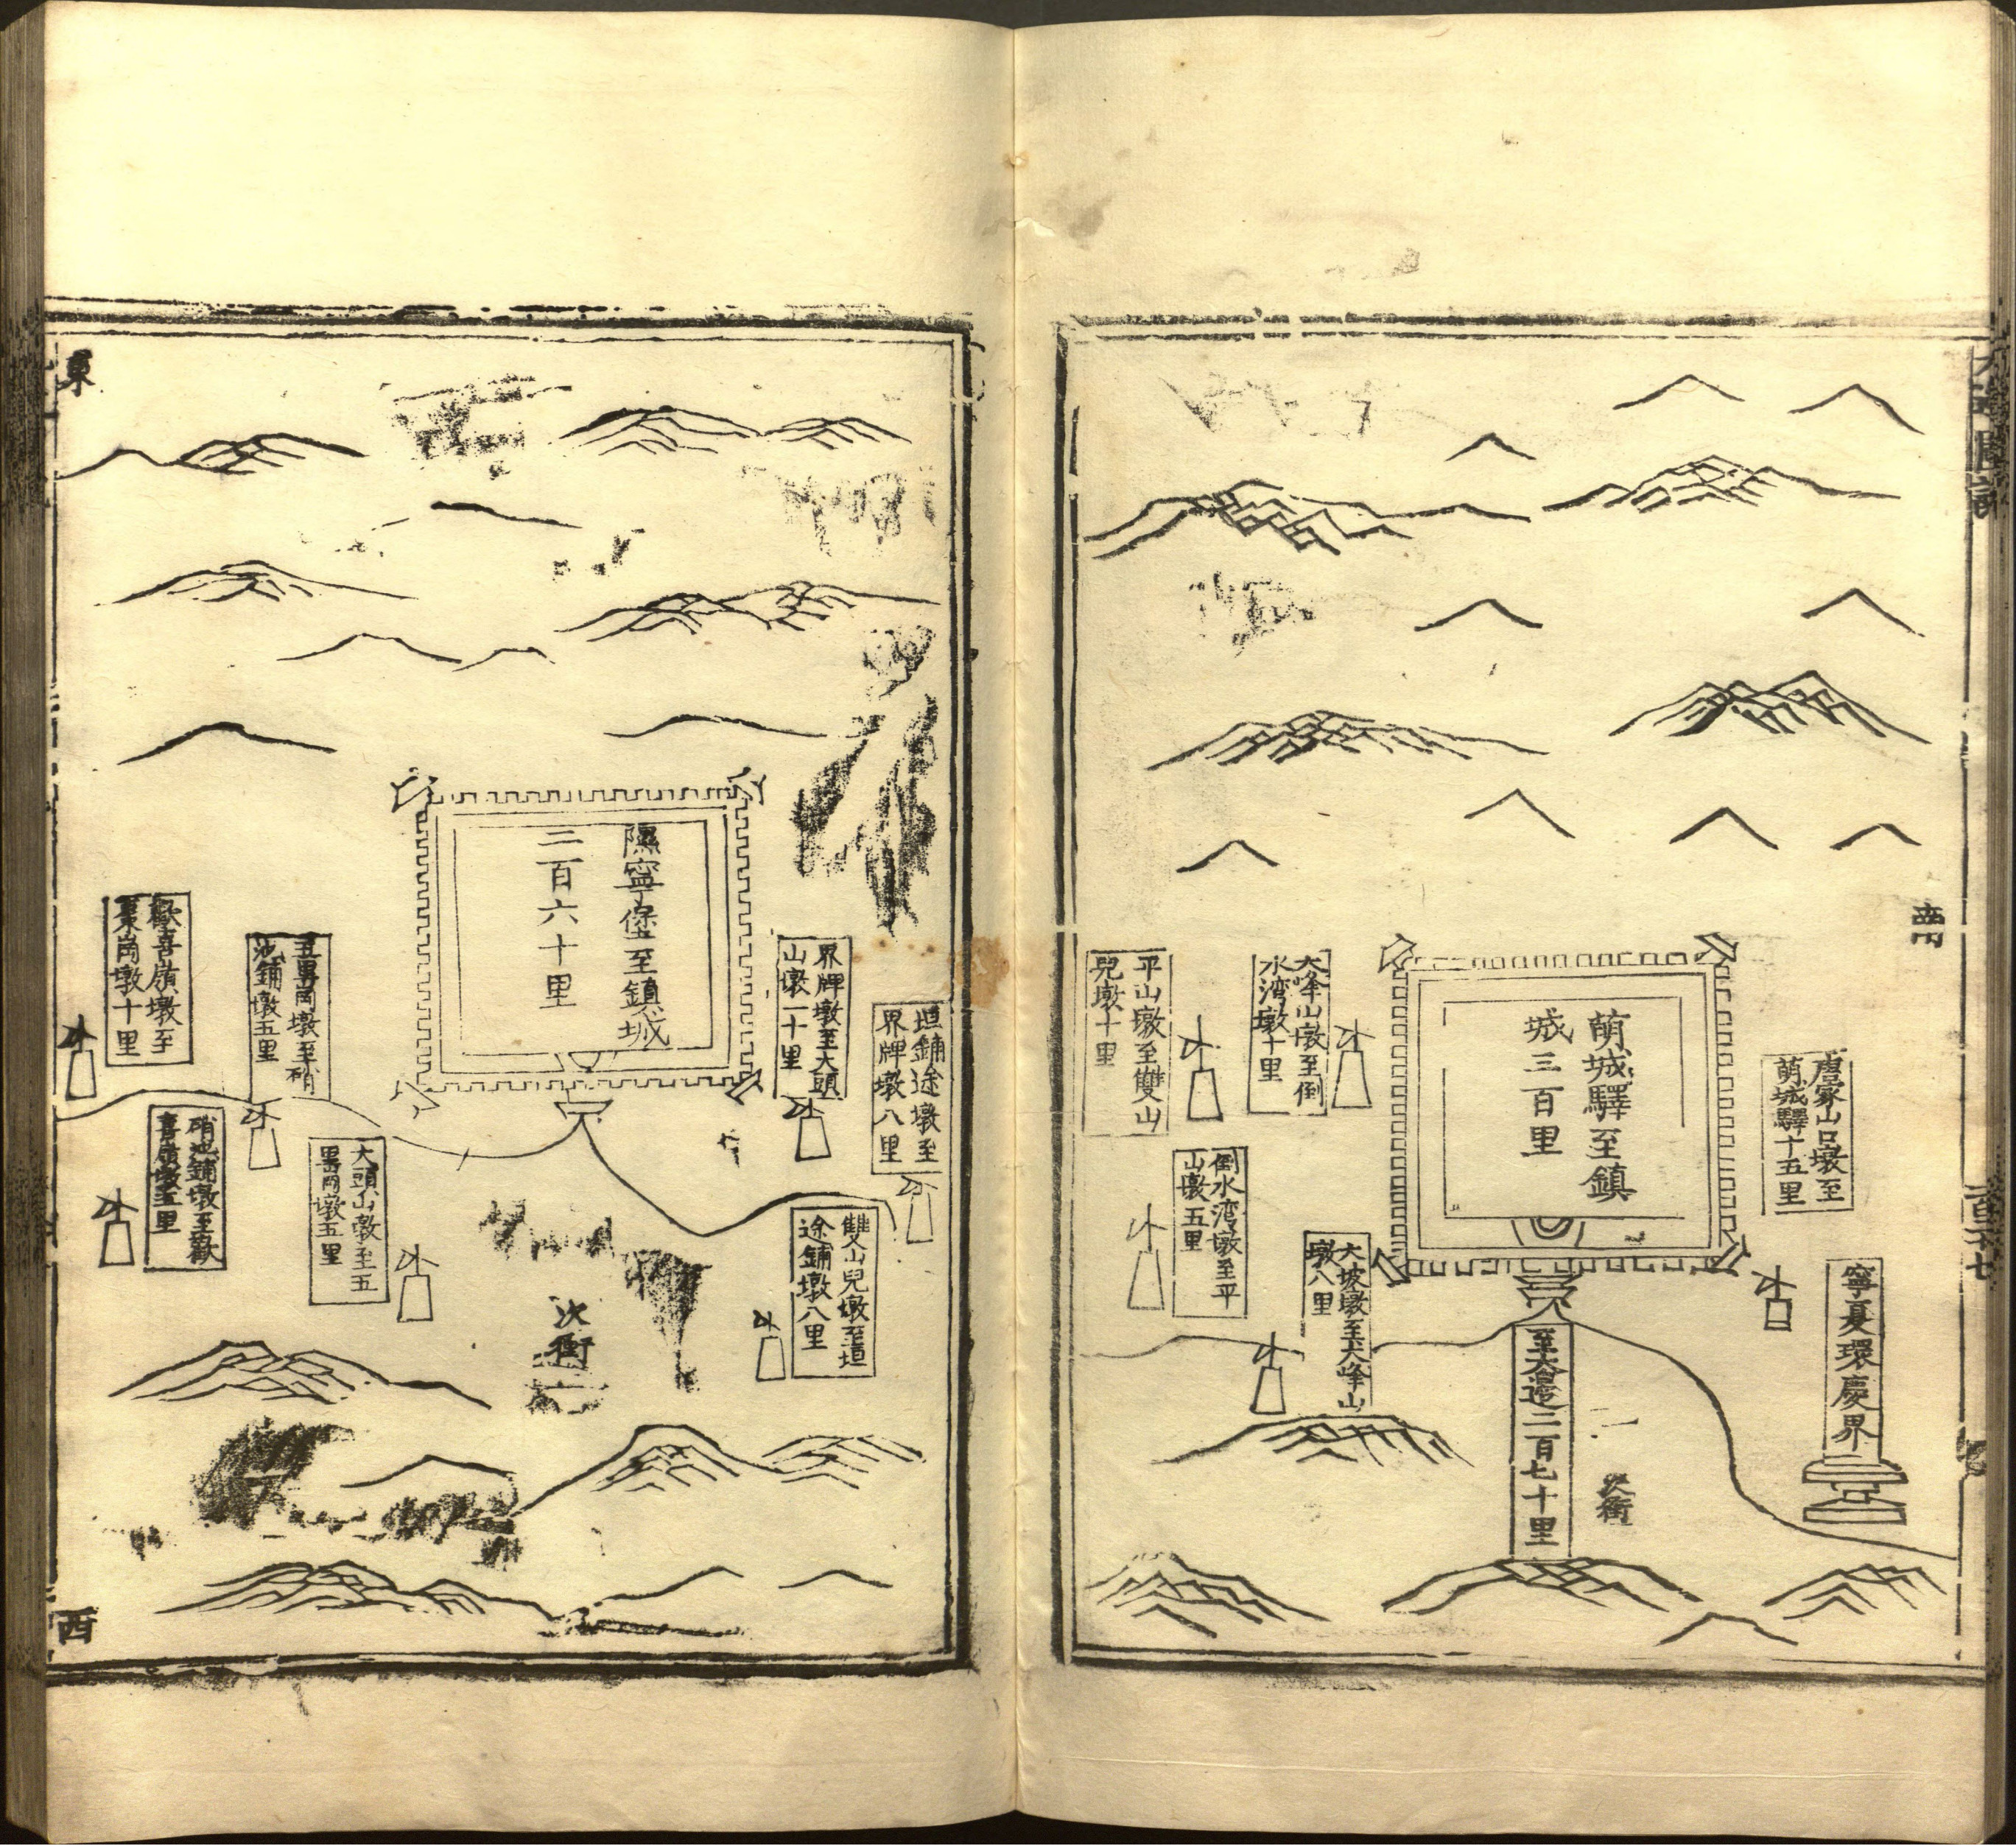 南
唐家山口墩至
萌城驛十五里
寧夏環慶界
萌城驛至鎮
城三百里
至大邊二百七十里
次衝
大坡墩至大峰山
墩八里
大峰山墩至倒
水湾墩十里
倒水湾墩至平
山墩五里
平山墩至雙山
兒墩十里
雙山兒墩至垣
途鋪墩八里
垣鋪途墩至
界牌墩八里
界牌墩至大頭
山墩一十里
隰寧堡至鎮城
三百六十里
次衝
大頭山墩至五
里崗墩五里
五里崗墩至硝
池鋪墩五里
硝池鋪墩至歡
喜嶺墩五里
歡喜嶺墩至
棗崗墩十里
東
西